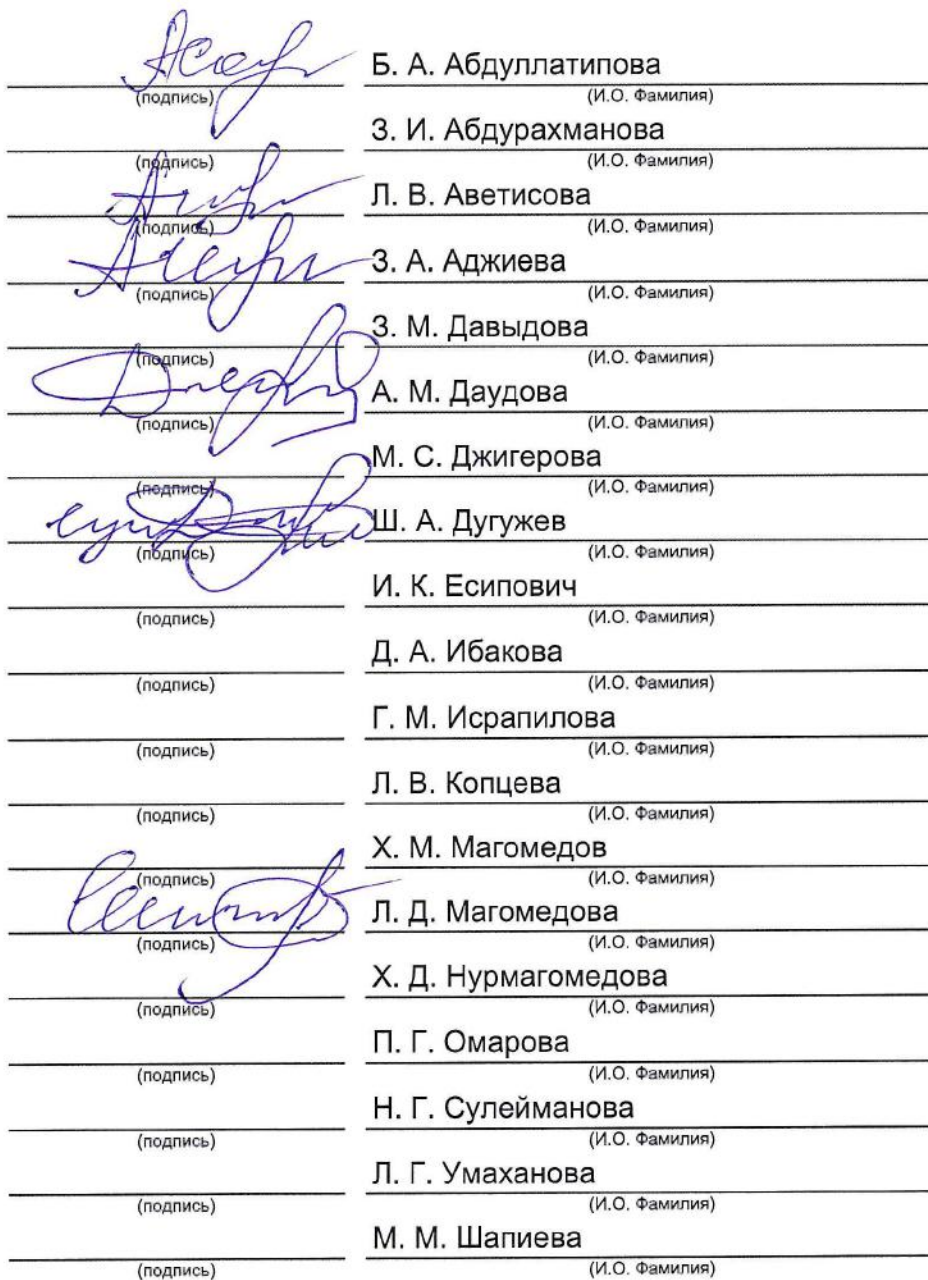 Б. А. Абдуллатипова
(подпись) (И.О. Фамилия)
З. И. Абдурахманова
(подпись) (И.О. Фамилия)
Л. В. Аветисова
(подпись) (И.О. Фамилия)
З. А. Аджиева
(подпись) (И.О. Фамилия)
З. М. Давыдова
(подпись) (И.О. Фамилия)
А. М. Даудова
(подпись) (И.О. Фамилия)
М. С. Джигерова
(подпись) (И.О. Фамилия)
Ш. А. Дугужев
(подпись) (И.О. Фамилия)
И. К. Есипович
(подпись) (И.О. Фамилия)
Д. А. Ибакова
(подпись) (И.О. Фамилия)
Г. М. Исрапилова
(подпись) (И.О. Фамилия)
Л. В. Копцева
(подпись) (И.О. Фамилия)
Х. М. Магомедов
(подпись) (И.О. Фамилия)
Л. Д. Магомедова
(подпись) (И.О. Фамилия)
Х. Д. Нурмагомедова
(подпись) (И.О. Фамилия)
П. Г. Омарова
(подпись) (И.О. Фамилия)
Н. Г. Сулейманова
(подпись) (И.О. Фамилия)
Л. Г. Умаханова
(подпись) (И.О. Фамилия)
М. М. Шапиева
(подпись) (И.О. Фамилия)